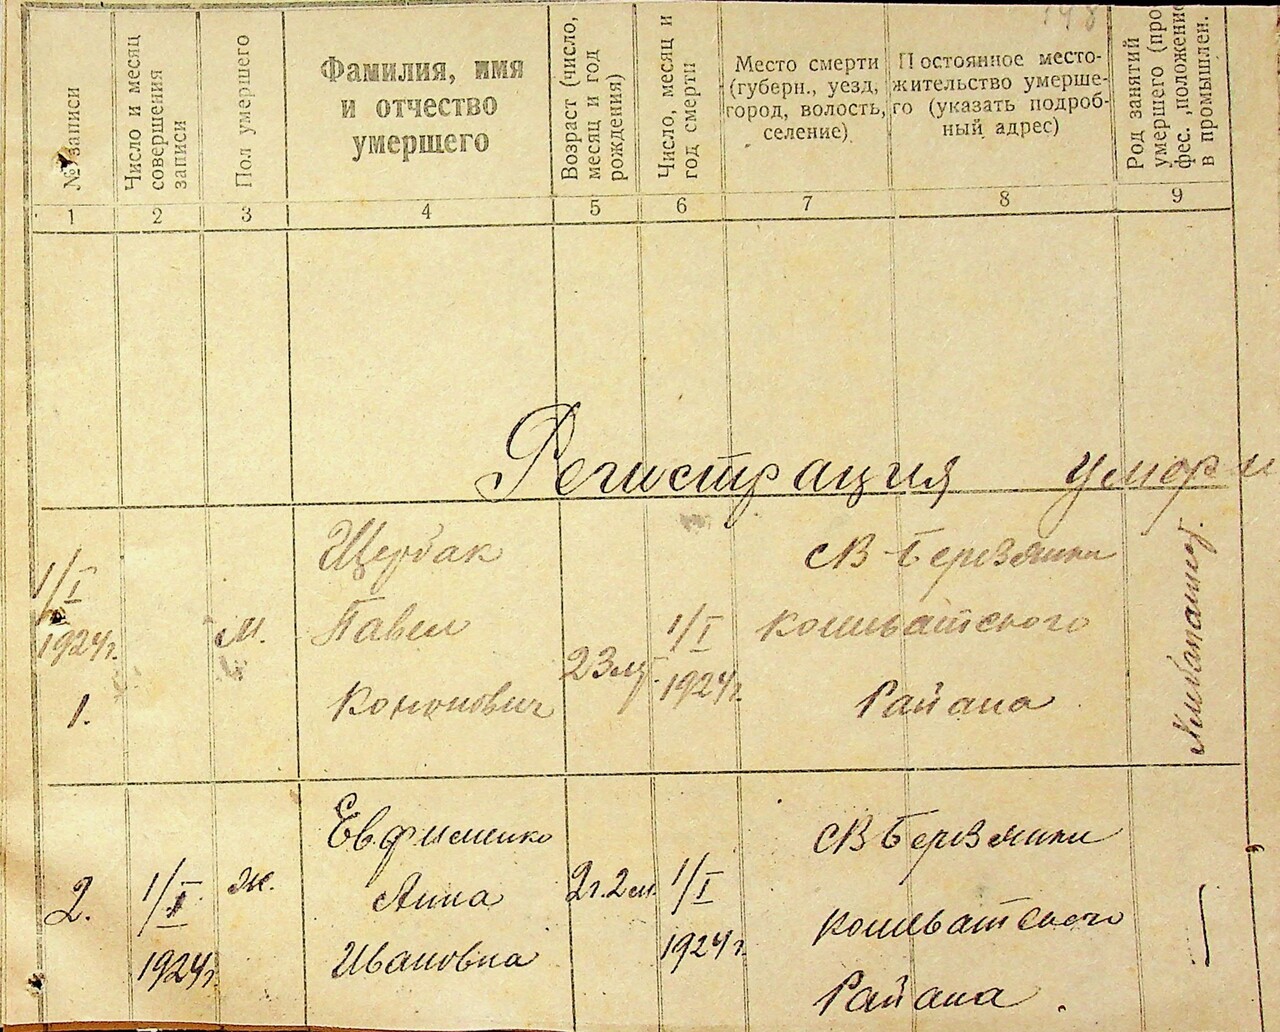 148
№ записи
Число и месяц
совершения
записи
Пол умершего
Фамилия, имя
и отчество
умершего
Возраст (число,
месяц и год
рождения)
Число, месяц и
год смерти
Место смерти
(губерн., уезд,
город, волость,
селение)
Постоянное место-
жительство умерше-
го (указать подроб-
ный адрес)
Род занятий
умершего (про
фес., положение
в промышлен.
1 2 3 4 5 6 7 8 9
Регистрация умерш
1/I
1924г.
1.
м.
Щербак
Павел
Кононович
23
1/I
1924г.
Св Березянки
Районна
2.
1/I
1924г
ж.
Евфименко
Анна
Ивановна
2г. 2м.
1/I
1924г.
Св Березянки
Районна.